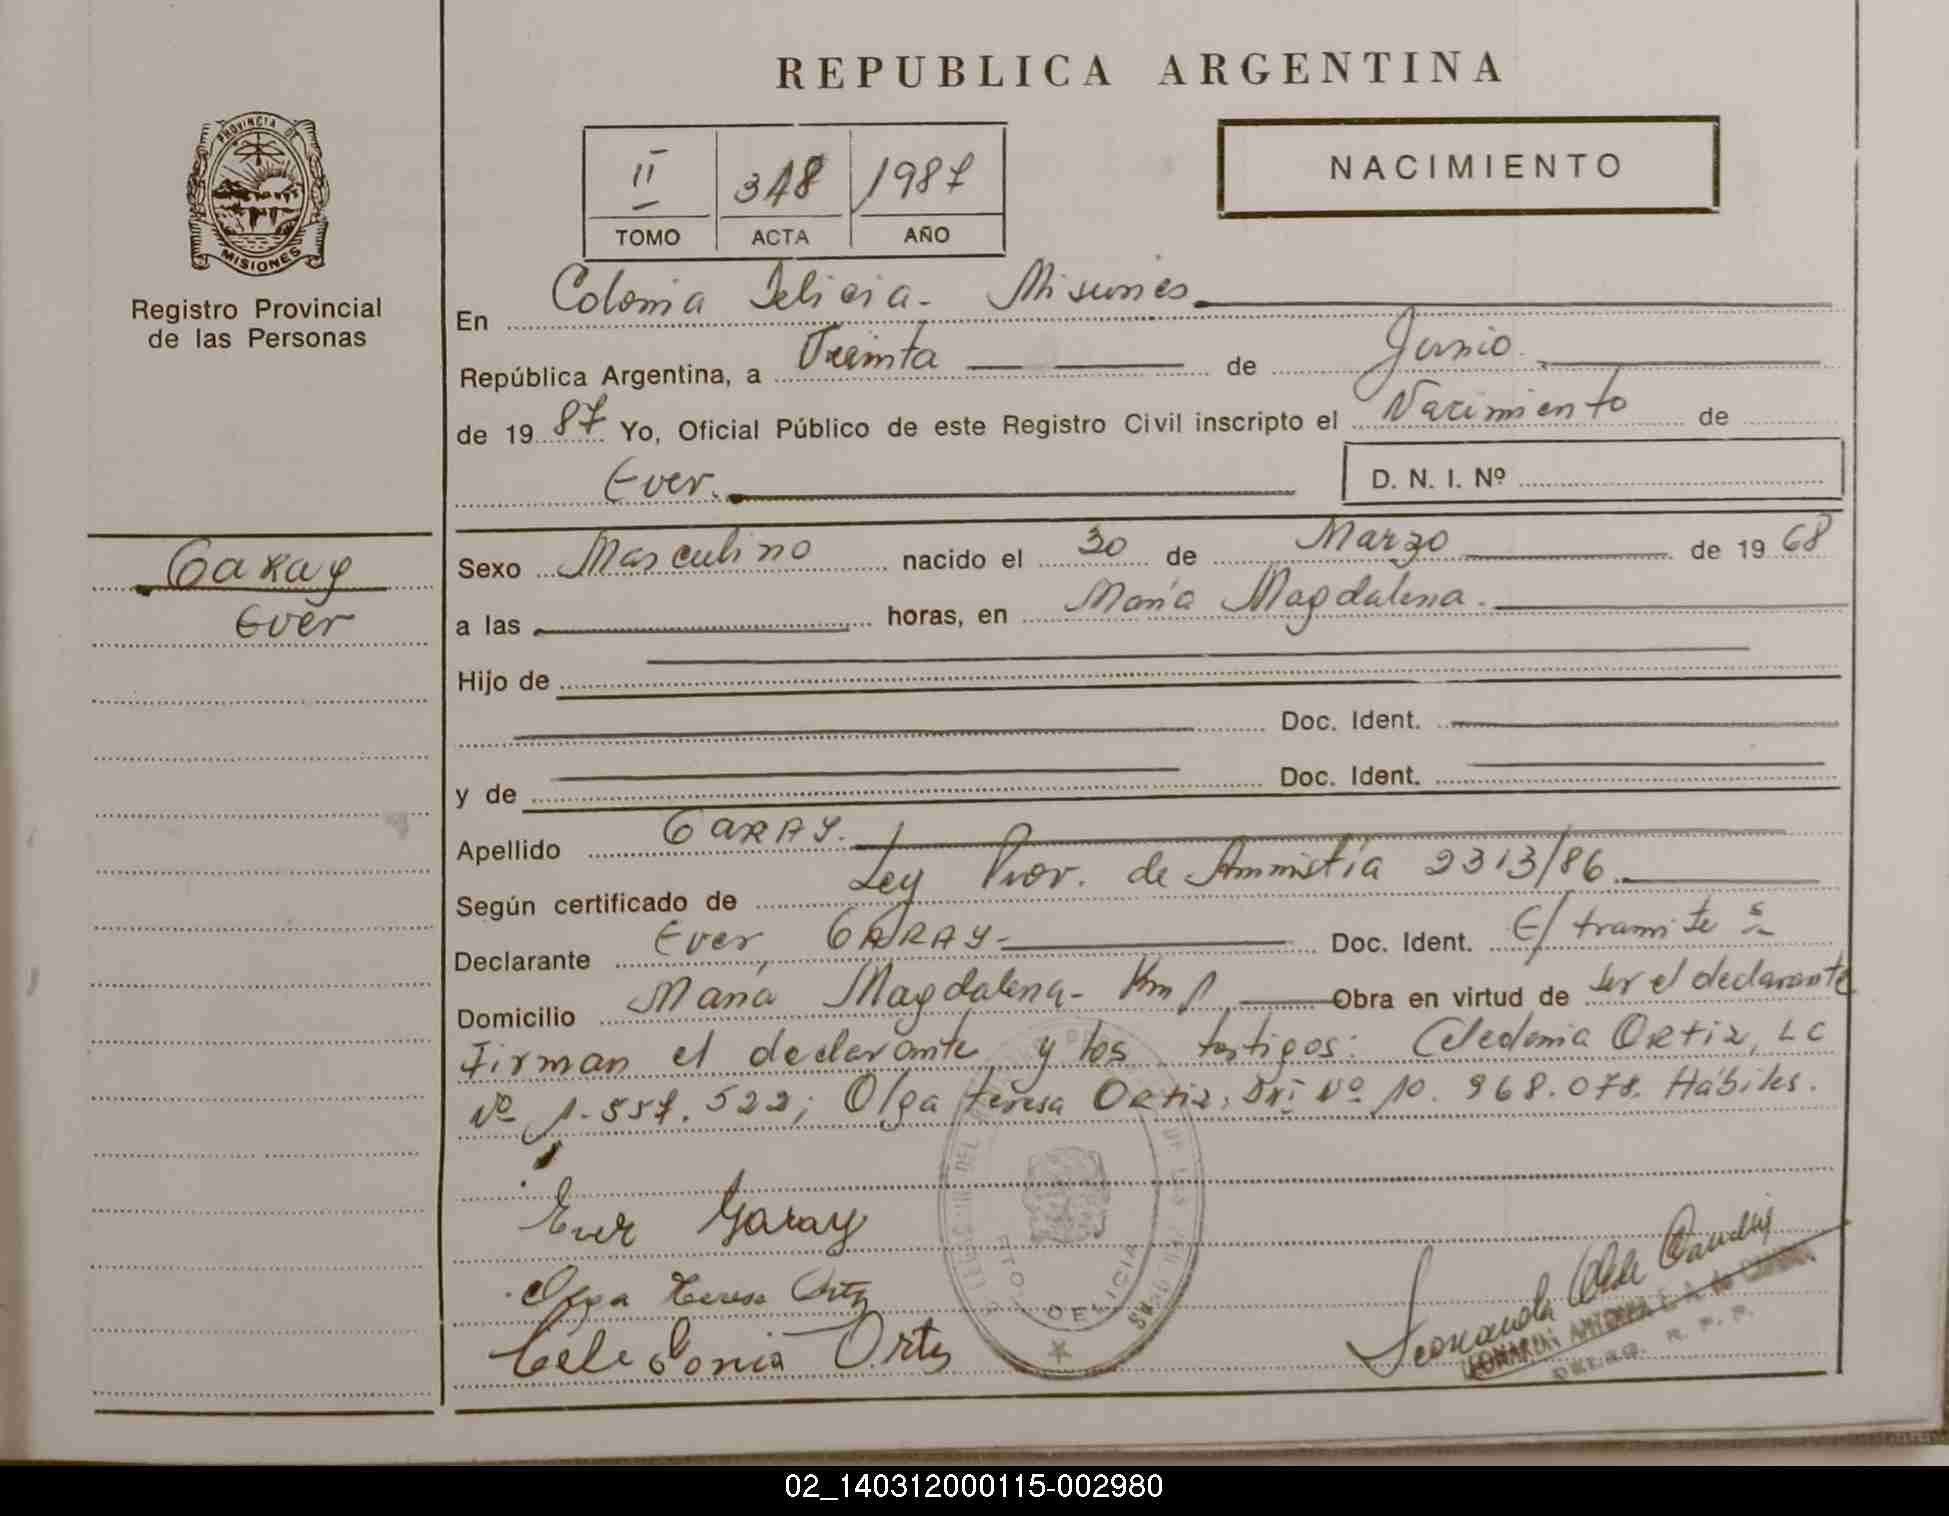 REPUBLICA ARGENTINA
PROVINCIA DE
MISIONES
Registro Provincial
de las Personas
II 348 1987
TOMO ACTA AÑO
NACIMIENTO
En Colonia Delicia - Misiones
República Argentina, a Treinta de Junio
de 19 87 Yo, Oficial Público de este Registro Civil inscripto el Nacimiento de
Ever. D. N. I. Nº
Garay
Ever
Sexo Masculino nacido el 30 de Marzo de 19 68
a las horas, en María Magdalena.
Hijo de
Doc. Ident.
y de Doc. Ident.
Apellido GARAY.
Según certificado de Ley Prov. de Amnistía 2313/86.
Declarante Ever GARAY- Doc. Ident. E/ tramite
Domicilio María Magdalena - Km 1 Obra en virtud de ser el declarante
Firman el declarante y los testigos: Celedonia Ortiz, LC
Nº 1.557.522; Olga teresa Ortiz, DNI Nº 10.968.078. Hábiles.
Ever Garay
Olga Teresa Ortiz
Celedonia Ortiz
DELICIA
R. P. P.
02_140312000115-002980